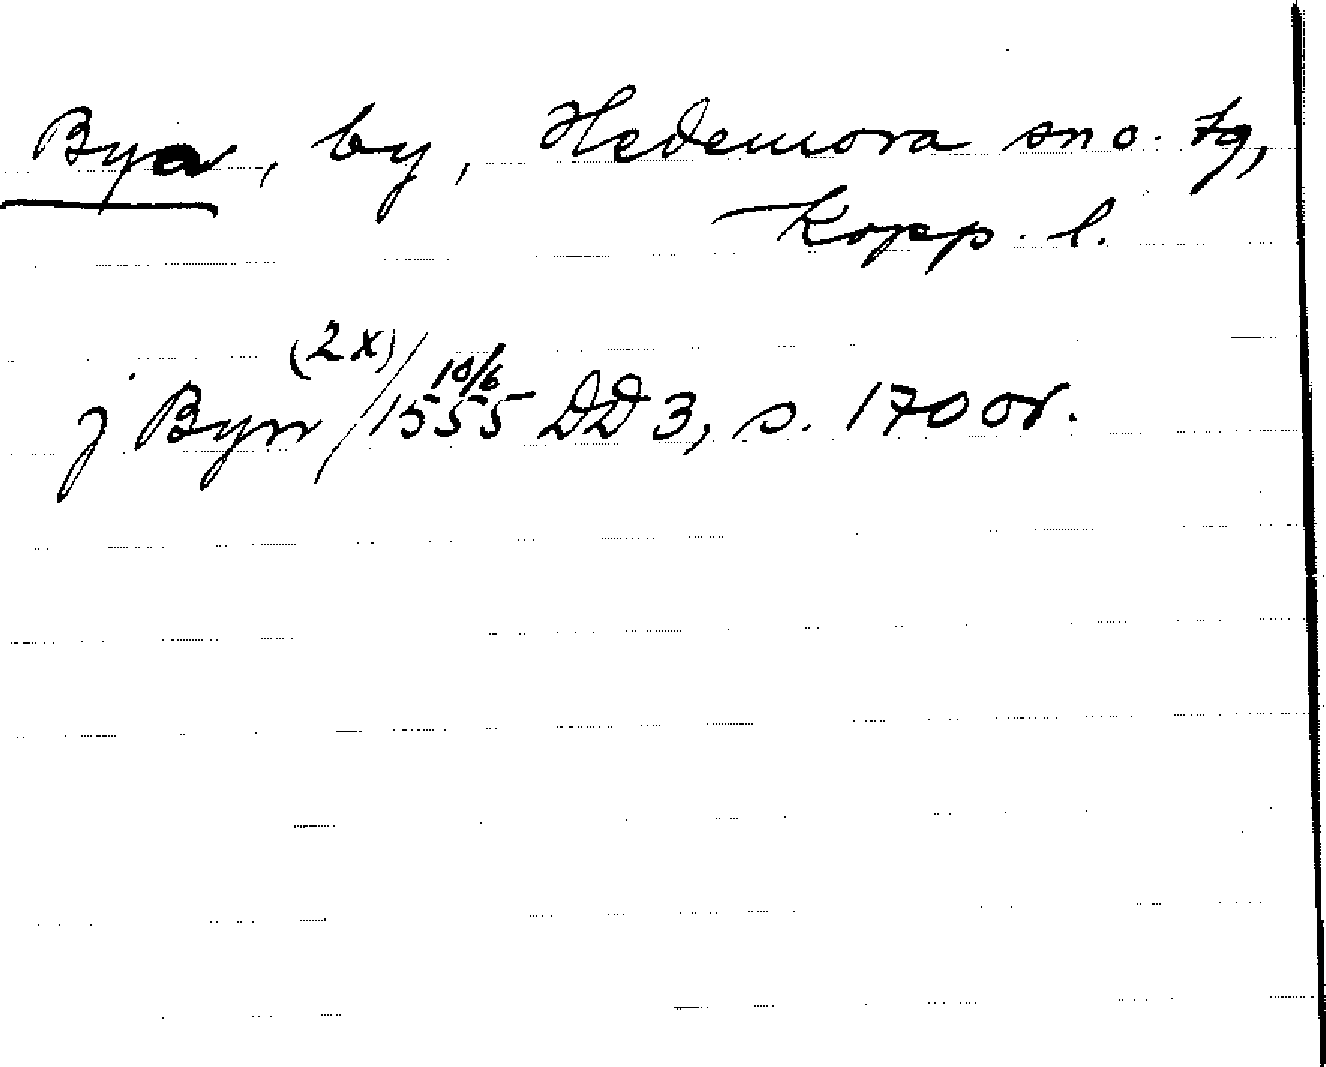 Byn, by, Hedemora sn o. tg,
Kopp. l.
j Byn (2x) / 10/6 1555 DD 3, s. 170 or.